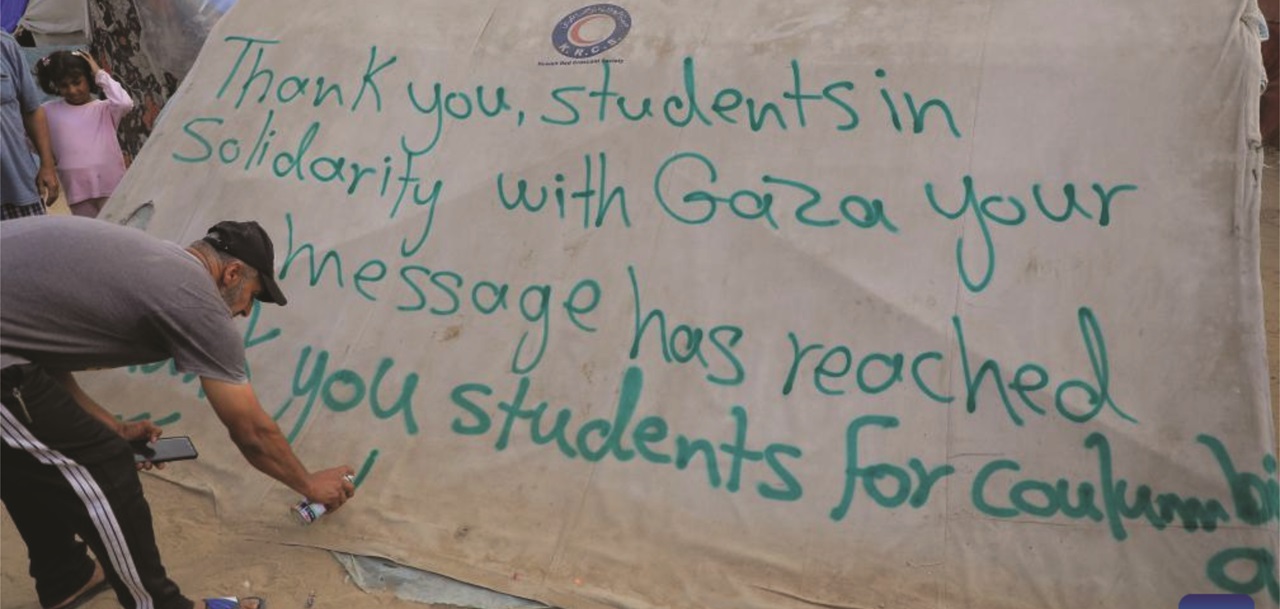 K.R.C.S.
Kuwait Red Crescent Society
Thank you, students in
Solidarity with Gaza your
message has reached
you students for coulumbi
a